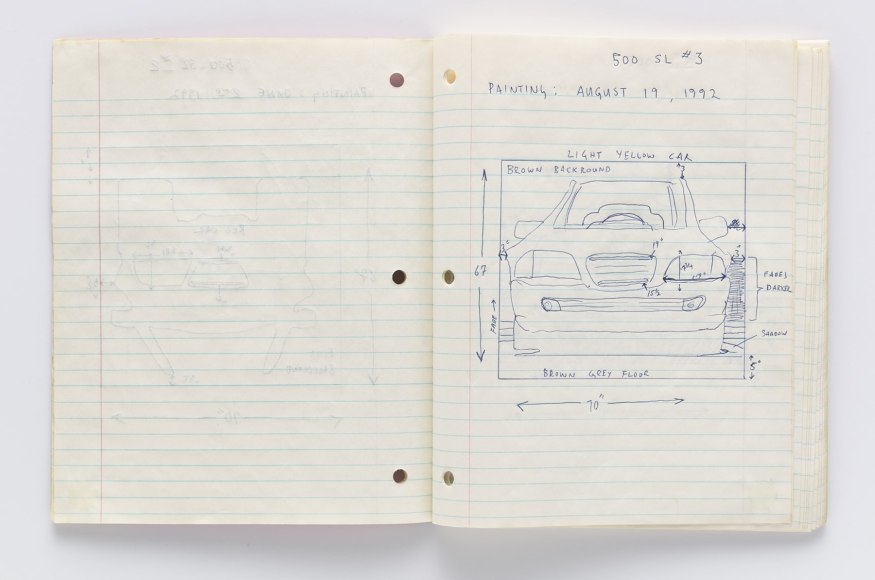 500 SL #3
PAINTING: AUGUST 19, 1992
LIGHT YELLOW CAR
BROWN BACKGROUND
3"
3"
3"
19"
67
15½
FADE →
FADES
DARKER
SHADOW
5"
BROWN GREY FLOOR
70"